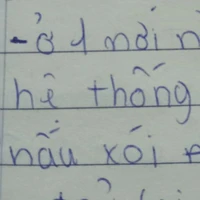 - ở 1 mỗi n
hệ thống
nấu xói